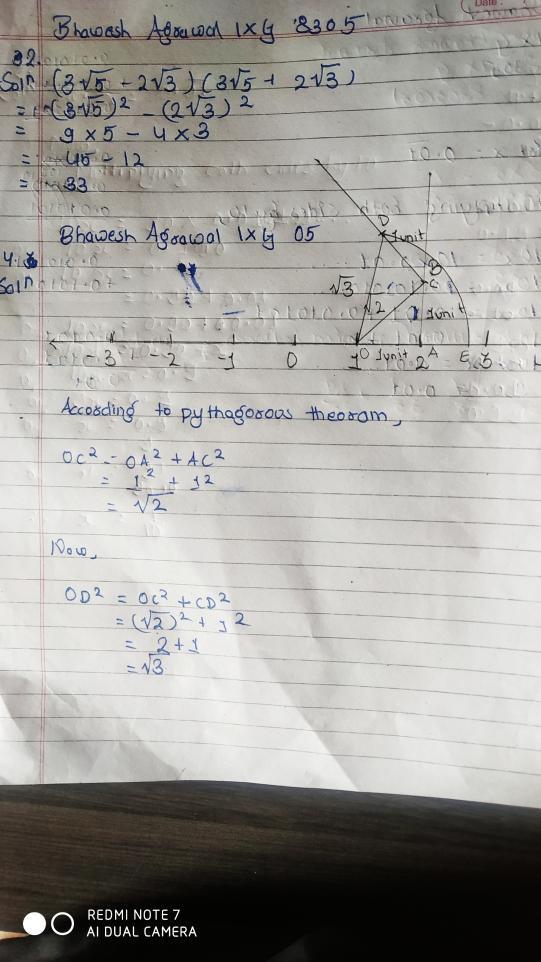 Date :
Bhawesh Agrawal IXG 8305
32.
Soln (3√5 - 2√3) (3√5 + 2√3)
= (3√5)² - (2√3)²
= 9 × 5 - 4 × 3
= 45 - 12
= 33
Bhawesh Agrawal IXG 05
4.
Soln
D
1unit
B
C
√3
√2
1unit
-3 -2 -1 0 1 O 1unit 2 A E 3
According to pythagorous theoram,
OC² = OA² + AC²
= 1² + 1²
= √2
Now,
OD² = OC² + CD²
= (√2)² + 1²
= 2 + 1
= √3
REDMI NOTE 7
AI DUAL CAMERA